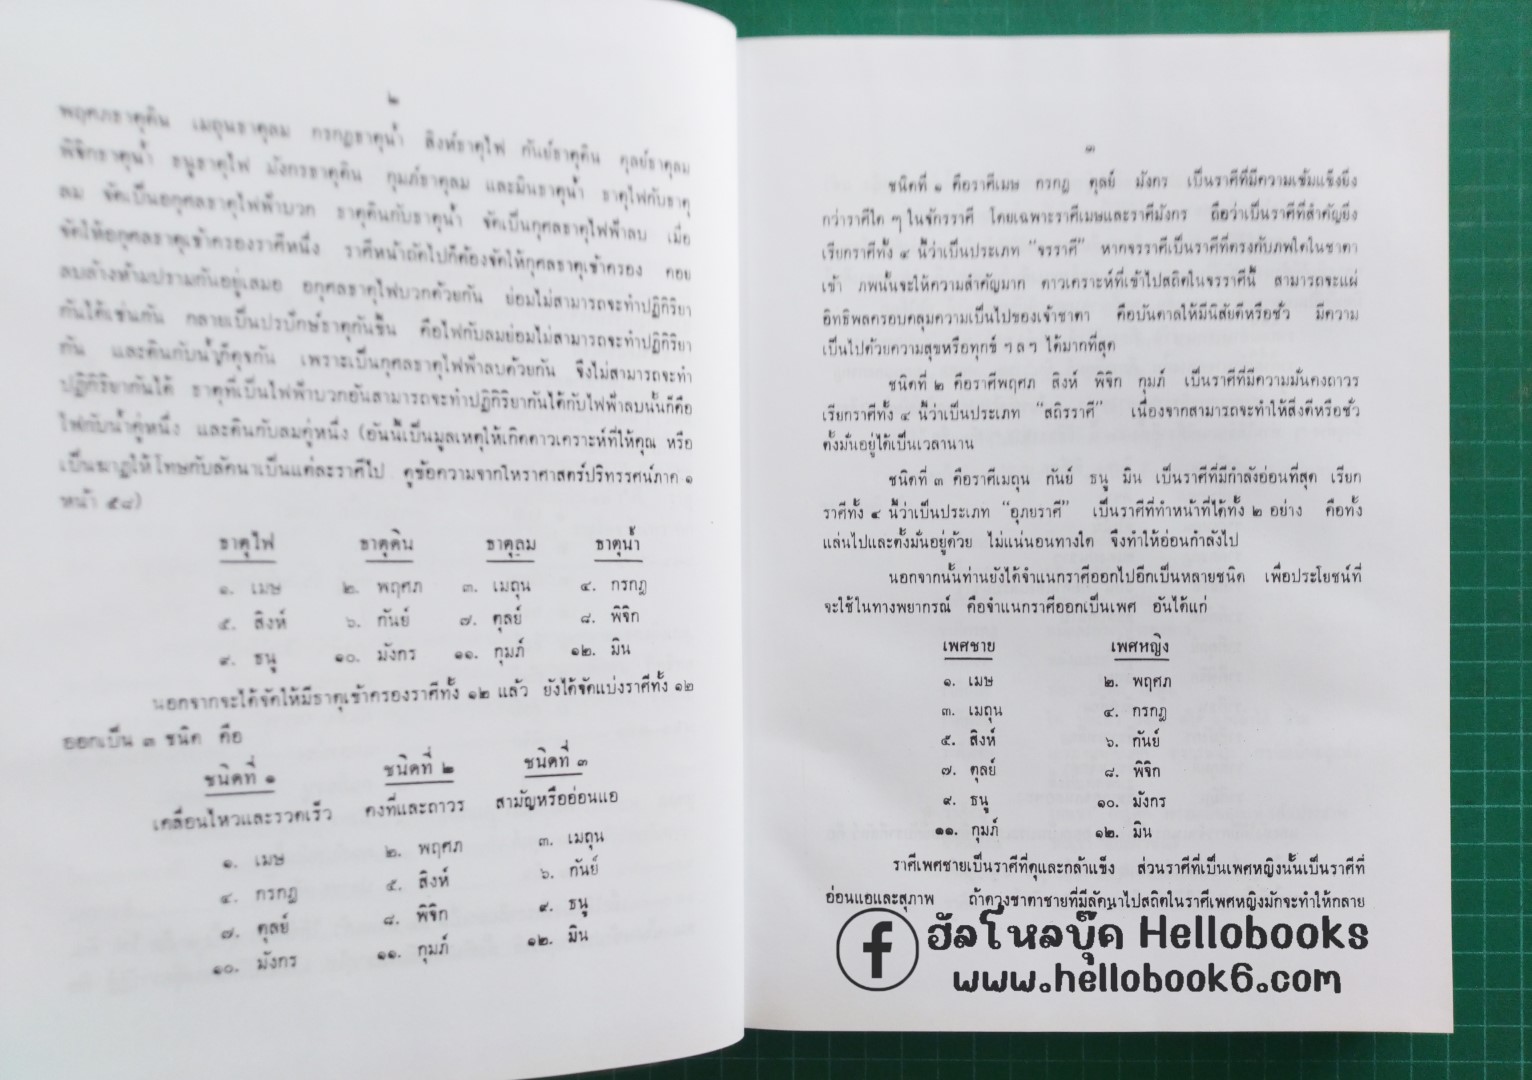 ๒
พฤศภธาตุดิน เมถุนธาตุลม กรกฎธาตุน้ำ สิงห์ธาตุไฟ กันย์ธาตุดิน ตุลย์ธาตุลม
พิจิกธาตุน้ำ ธนูธาตุไฟ มังกรธาตุดิน กุมภ์ธาตุลม และมินธาตุน้ำ ธาตุไฟกับธาตุ
ลม จัดเป็นอกุศลธาตุไฟฟ้าบวก ธาตุดินกับธาตุน้ำ จัดเป็นกุศลธาตุไฟฟ้าลบ เมื่อ
จัดให้อกุศลธาตุเข้าครองราศีหนึ่ง ราศีหน้าถัดไปก็ต้องจัดให้กุศลธาตุเข้าครอง คอย
ลบล้างห้ามปรามกันอยู่เสมอ อกุศลธาตุไฟบวกด้วยกัน ย่อมไม่สามารถจะทำปฏิกิริยา
กันได้เช่นกัน กลายเป็นปรปักษ์ธาตุกันขึ้น คือไฟกับลมย่อมไม่สามารถจะทำปฏิกิริยา
กัน และดินกับน้ำก็ดุจกัน เพราะเป็นกุศลธาตุไฟฟ้าลบด้วยกัน จึงไม่สามารถจะทำ
ปฏิกิริยากันได้ ธาตุที่เป็นไฟฟ้าบวกอันสามารถจะทำปฏิกิริยากันได้กับไฟฟ้าลบนั้นก็คือ
ไฟกับน้ำคู่หนึ่ง และดินกับลมคู่หนึ่ง (อันนี้เป็นมูลเหตุให้เกิดดาวเคราะห์ที่ให้คุณ หรือ
เป็นฆาฏให้โทษกับลัคนาเป็นแต่ละราศีไป ดูข้อความจากโหราศาสตร์ปริทรรศน์ภาค ๑
หน้า ๕๘)
ธาตุไฟ ธาตุดิน ธาตุลม ธาตุน้ำ
๑. เมษ ๒. พฤศภ ๓. เมถุน ๔. กรกฎ
๕. สิงห์ ๖. กันย์ ๗. ตุลย์ ๘. พิจิก
๙. ธนู ๑๐. มังกร ๑๑. กุมภ์ ๑๒. มิน
นอกจากจะได้จัดให้มีธาตุเข้าครองราศีทั้ง ๑๒ แล้ว ยังได้จัดแบ่งราศีทั้ง ๑๒
ออกเป็น ๓ ชนิด คือ
ชนิดที่ ๑ ชนิดที่ ๒ ชนิดที่ ๓
เคลื่อนไหวและรวดเร็ว คงที่และถาวร สามัญหรืออ่อนแอ
๑. เมษ ๒. พฤศภ ๓. เมถุน
๔. กรกฎ ๕. สิงห์ ๖. กันย์
๗. ตุลย์ ๘. พิจิก ๙. ธนู
๑๐. มังกร ๑๑. กุมภ์ ๑๒. มิน
๓
ชนิดที่ ๑ คือราศีเมษ กรกฎ ตุลย์ มังกร เป็นราศีที่มีความเข้มแข็งยิ่ง
กว่าราศีใด ๆ ในจักรราศี โดยเฉพาะราศีเมษและราศีมังกร ถือว่าเป็นราศีที่สำคัญยิ่ง
เรียกราศีทั้ง ๔ นี้ว่าเป็นประเภท “จรราศี” หากจรราศีเป็นราศีที่ตรงกับภพใดในชาตา
เข้า ภพนั้นจะให้ความสำคัญมาก ดาวเคราะห์ที่เข้าไปสถิตในจรราศีนี้ สามารถจะแผ่
อิทธิพลครอบคลุมความเป็นไปของเจ้าชาตา คือบันดาลให้มีนิสัยดีหรือชั่ว มีความ
เป็นไปด้วยความสุขหรือทุกข์ ฯลฯ ได้มากที่สุด
ชนิดที่ ๒ คือราศีพฤศภ สิงห์ พิจิก กุมภ์ เป็นราศีที่มีความมั่นคงถาวร
เรียกราศีทั้ง ๔ นี้ว่าเป็นประเภท “สถิรราศี” เนื่องจากสามารถจะทำให้สิ่งดีหรือชั่ว
ตั้งมั่นอยู่ได้เป็นเวลานาน
ชนิดที่ ๓ คือราศีเมถุน กันย์ ธนู มิน เป็นราศีที่มีกำลังอ่อนที่สุด เรียก
ราศีทั้ง ๔ นี้ว่าเป็นประเภท “อุภยราศี” เป็นราศีที่ทำหน้าที่ได้ทั้ง ๒ อย่าง คือทั้ง
แล่นไปและตั้งมั่นอยู่ด้วย ไม่แน่นอนทางใด จึงทำให้อ่อนกำลังไป
นอกจากนั้นท่านยังได้จำแนกราศีออกไปอีกเป็นหลายชนิด เพื่อประโยชน์ที่
จะใช้ในทางพยากรณ์ คือจำแนกราศีออกเป็นเพศ อันได้แก่
เพศชาย เพศหญิง
๑. เมษ ๒. พฤศภ
๓. เมถุน ๔. กรกฎ
๕. สิงห์ ๖. กันย์
๗. ตุลย์ ๘. พิจิก
๙. ธนู ๑๐. มังกร
๑๑. กุมภ์ ๑๒. มิน
ราศีเพศชายเป็นราศีที่ดุและกล้าแข็ง ส่วนราศีที่เป็นเพศหญิงนั้นเป็นราศีที่
อ่อนแอและสุภาพ ถ้าดวงชาตาชายที่มีลัคนาไปสถิตในราศีเพศหญิงมักจะทำให้กลาย
f ฮัลโหลบุ๊ค Hellobooks
www.hellobook6.com